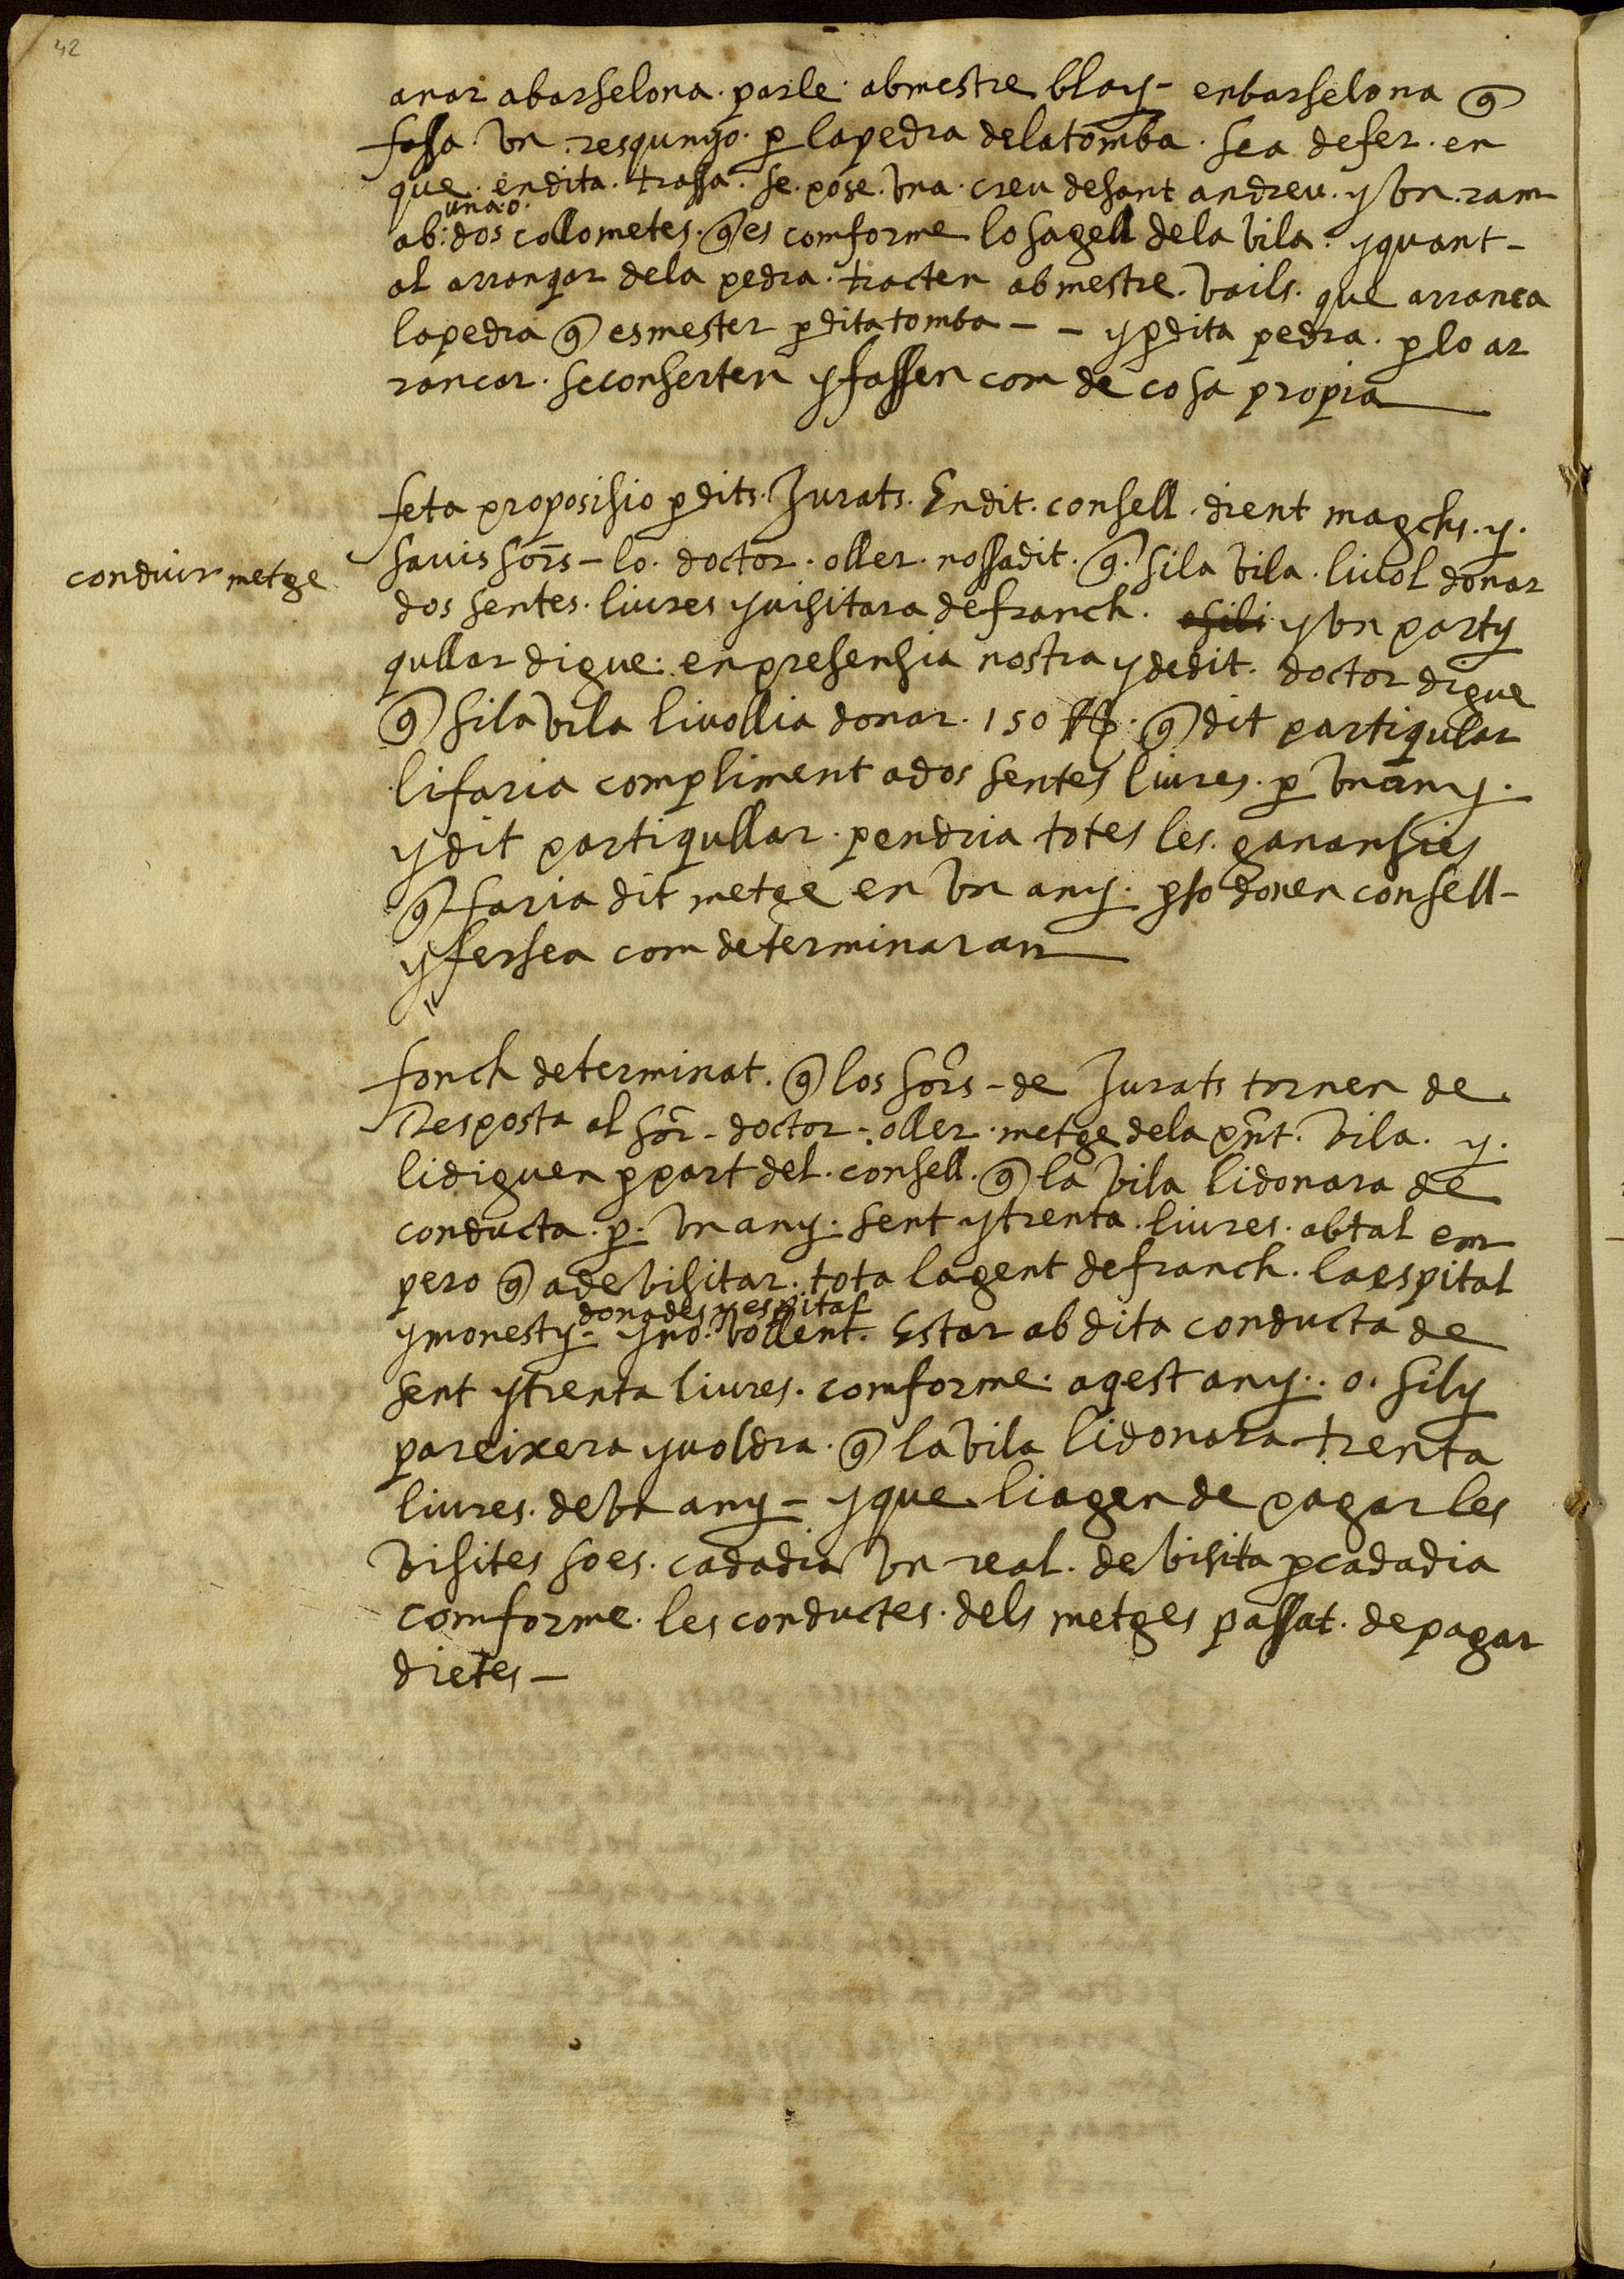 42
anar abarselona. parle. abmestre blay - enbarselona q̄
fassa. vn. resqunyo. p̱ lapedra delatomba. sea defer. en
que. endita. trassa. se. pose. vna. creu desant andreu. y vn. ram
una.o.
ab: dos collometes. q̄ es comforme lo sagell dela vila. yquant -
al arranqar dela pedra. tracten abmestre. vails. que arranca
lapedra q̄ esmester p̱ditatomba - - yp̱dita pedra. p̱ lo ar
rancar. seconserten yfassen com de cosa propia
feta proposisio p̱dits. Jurats. Endit. consell. dient magchs. y.
conduir metge
savis sors̄ - lo. doctor. oller. nossadit. q̄. sila vila. livol donar
dos sentes. liures yvisitara defranch. y vn party
qullar digue. enpresensia nostra ydedit. doctor digue
q̄ sila vila livollia donar. 150 ll. q̄ dit partiqular
lifaria compliment ados sentes liures. p̱ vnany.
ydit partiqullar. pendria totes les. ganansies
q̄ faria dit metge en vn any. p̱so donen consell -
yfersea com determinaran
fonch determinat. q̄ los sors̄ - de Jurats tornen de
Resposta al sor̄ - doctor - oller. metge dela pn̄t. vila. y.
lidiguen p̱ part del. consell. q̄ la vila lidonara de
conducta. p̱. vn any. sent ytrenta. liures. abtal em
pero q̄ ade visitar. tota lagent defranch. laespital
donades y espital
ymonesty - yno. vollent. Estar ab dita conducta de
sent ytrenta liures. comforme. aqest any.. o. sily
pareixera yvoldra. q̄ lavila lidonara trenta
liures. de vn any - yque. liagen de pagar les
visites soes. cadadia vn real. de visita p̱cadadia
comforme. les conductes. dels metges passat. depagar
dietes -